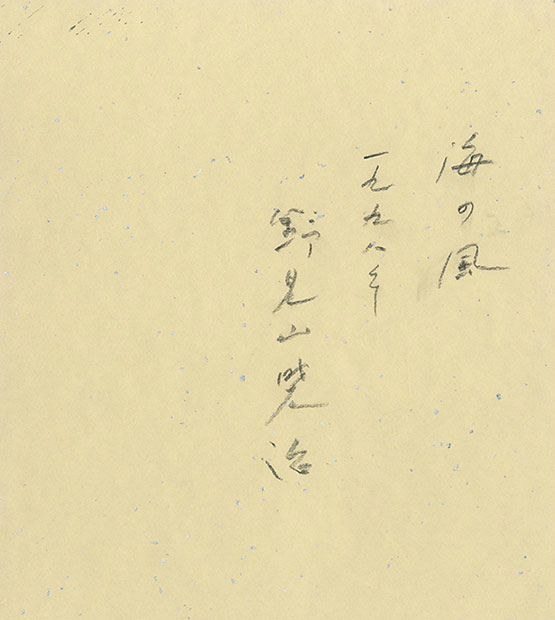 海の風
一九九八年
野見山暁治